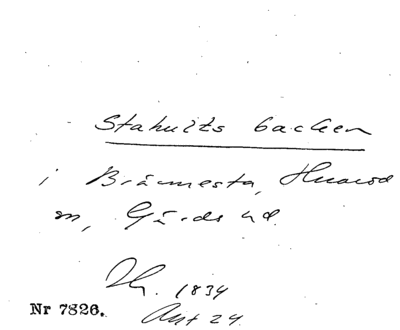 Stahults backen
i Brännesta, Huaröd
sn, Gärds hd.
Th. 1834
Akt 24
Nr 7826.